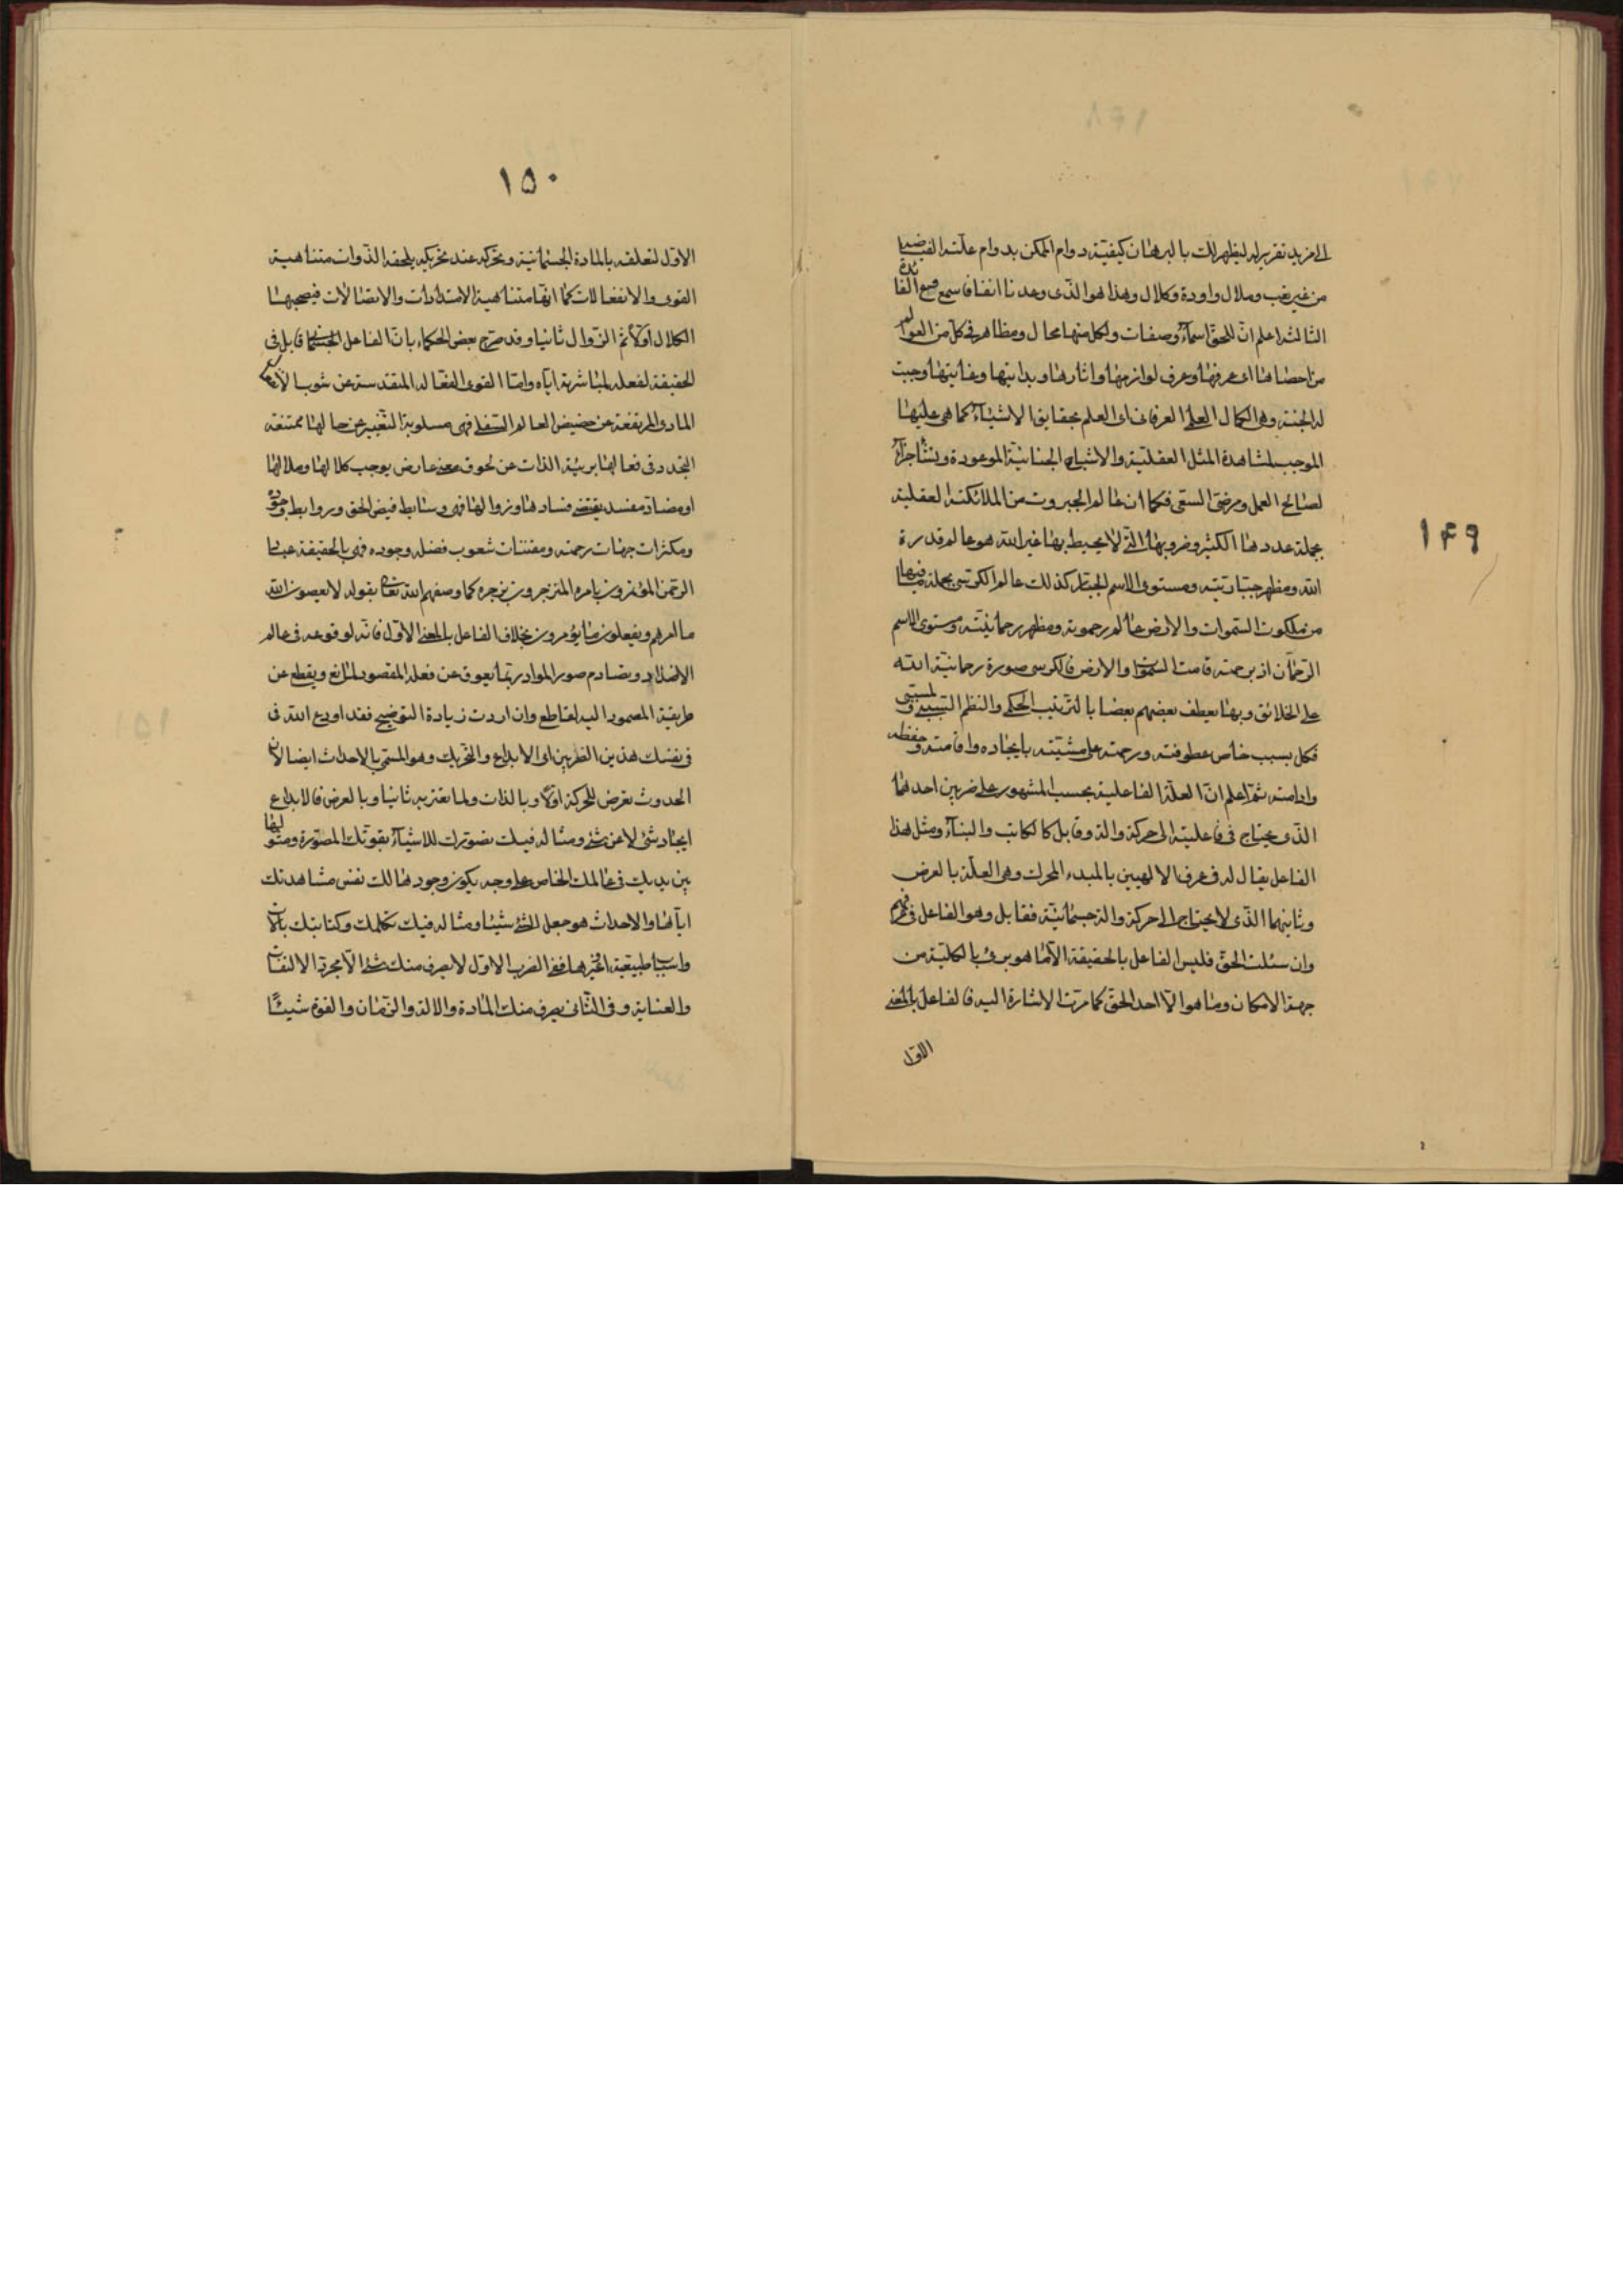 الى مزيد تقرير له ليظهر لك بالبرهان كيفيّة دوام الممكن بدوام علّته الفيضيا
من غير تعب وملال واودة وكلال وهذا هو الّذى وعدناا انفا فاسمع وضع الفا ئدة
الثالثه اعلم انّ للحقّ اسماءً وصفات ولكل منها محال ومظاهر فى كلّ من العوالم
من احصاها اى عرفها وعرف لوازمها واثارها وبدايتها وغايتها وجبت
له الجنّة وهى الكمال العلمى العرفانى اى العلم بحقايق الاشياء كما هى عليها
الموجب لمشاهدة المثل العقليّة والاشباح الجنانيّة الموعودة ونشأ جزاءً
لصالح العمل ومرضىّ السعى فكما ان عالم الجبروت من الملائكة العقلية
بجملة عددها الكثير وضروبها الّتى لا يحيط بها غير الله هو عالم قدرة
١٤٩
الله ومظهر جبّاريّته ومستوى الاسم الجبّار كذلك عالم الكرسى بجملة ما فيها
من ملكوت السّموات والارض عالم رحموته ومظهر رحمانيّته ومستوى الاسم
الرّحمان اذ برحمته قامت السّموات والارض فالكرسى صورة رحمانيّة الله
على الخلائق وبها يعطف بعضهم بعضا بالترتيب الحكمى والنظم السّببى والمسبّبى
فكل بسبب خاص عطوفته ورحمته على مشيّته بايجاده واقامته وحفظه
وادامته ثمّ اعلم انّ العلّة الفاعلية بحسب المشهور على ضربين احدهما
الّذى يحتاج فى فاعليته الى حركة والة وقابل كالكاتب والبنّاء ومثل هذا
الفاعل يقال له فى عرف الالهيين بالمبدء المحرك وهى العلّة بالعرض
وثانيهما الّذى لا يحتاج الى حركة والة جسمانيّة فقابل وهو الفاعل فى عرفهم
وان سئلت الحقّ فليس الفاعل بالحقيقة الّا ما هو برئ بالكليّة من
جهة الامكان وما هو الّا احد الحقّ كما مرّت الاشارة اليه فالفاعل بالمعنى
الاوّل
١٥٠
الاوّل لتعلقه بالمادة الجسمانية وتحرّكه عند تحريكه يلحقه الذّوات متناهية
القوى والانفعالات كما انّها متناهية الامتدادات والاتصالات فيصحبها
الكلال اوّلا ثمّ الزّوال ثانيا وقد صرّح بعض الحكماء بانّ الفاعل الجسمانى قابل فى
الحقيقة لفعله لمباشرته ايّاه وامّا القوى الفعّالة المتقدسة عن شوب الانفعال
المادى المرتفعة عن حضيض العالم السّفلى فهى مسلوبة التّغيير عن حالها ممتنعة
التجدد فى فعالها بريئة الذّات عن لحوق معنى عارض يوجب كلالها وملالها
او مضادّ مفسد يقتضى فسادها وزوالها فهى وسايط فيض الحق وروابط جوده
ومكثرات جهات رحمته ومفنّنات شعوب فضله وجوده فهى بالحقيقة عباد
الرّحمن المؤتمرون بامره المنزجرون بزجره كما وصفهم الله تعالى بقوله لا يعصون الله
ما امرهم ويفعلون ما يؤمرون بخلاف الفاعل بالمعنى الاوّل فانّه لوقوعه فى عالم
الاضداد وتصادم صور المواد ربّما يعوق عن فعله المقصود لمانع ويقطع عن
طريقة المصمود اليه لقاطع وان اردت زيادة التوضيح فقد اودع الله فى
فى نفسك هذين الضّربين اى الابداع والتّحريك وهو المسمّى بالاحداث ايضا لانّ
الحدوث تعرض للحركة اوّلا وبالذات ولما تعتريه ثانيا وبالعرض فالابداع
ايجاد شئ لا عن شئ ومثاله فيك تصوّرك للاشياء بقوّتك المصوّرة ومثولها
بين يديك فى عالمك الخاص على وجه يكون وجودها لك نفس مشاهدتك
ايّاها والاحداث هو جعل الشّئ شيئا ومثاله فيك تكلمك وكتابتك بآلات
واسباب طبيعية او غيرها ففى الضرب الاوّل لا يصرف منك شئ الّا مجرّد الالتفات
والعناية وفى الثّانى يصرف منك المادة والالة والزّمان والقوة شيئًا